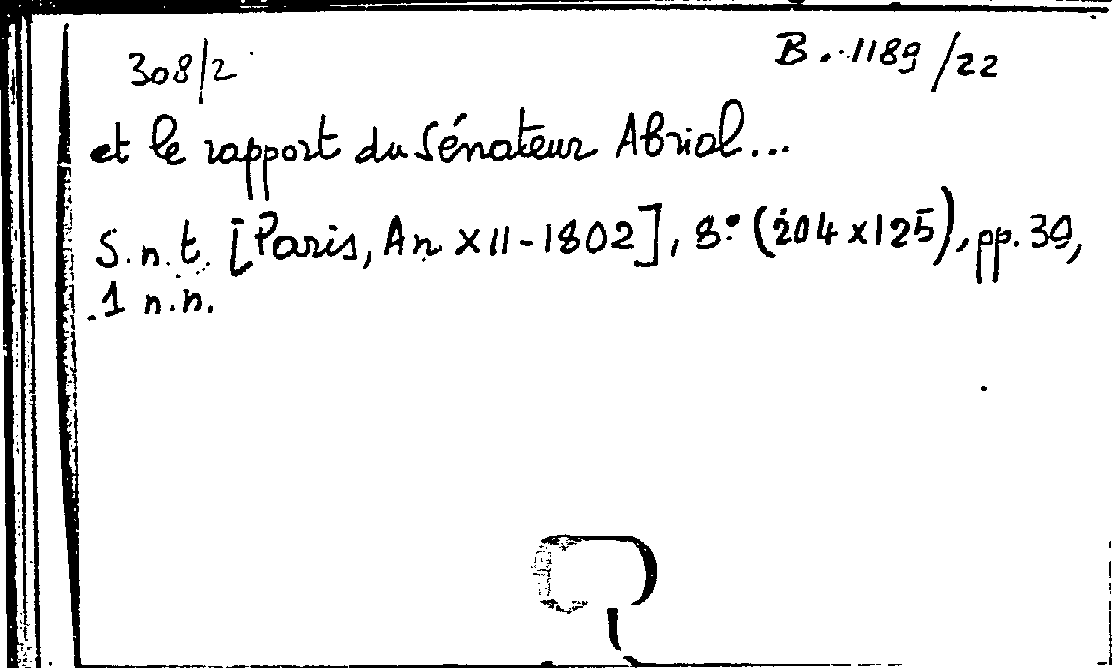 308/2
B. 1189/22
et le rapport du Sénateur Abrial...
S.n.t. [Paris, An XII-1802], 8° (204x125), pp. 39,
1 n.n.